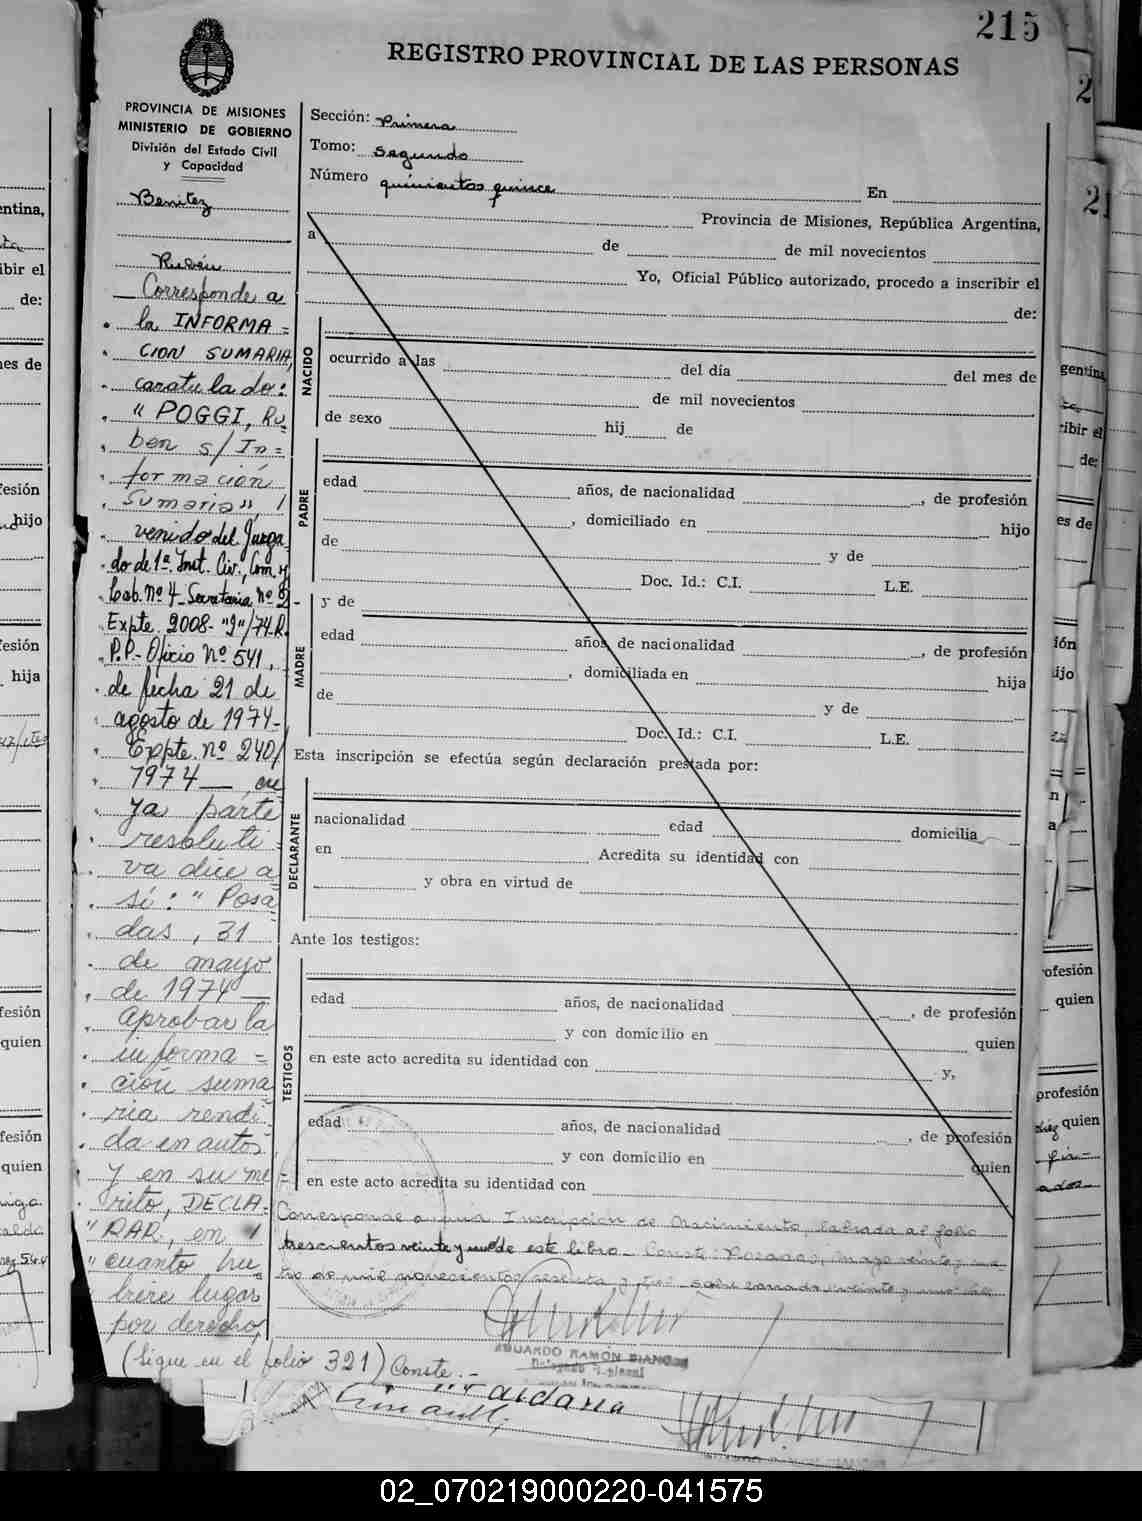 215
REGISTRO PROVINCIAL DE LAS PERSONAS
PROVINCIA DE MISIONES
MINISTERIO DE GOBIERNO
División del Estado Civil
y Capacidad
Benitez
Rubén
Corresponde a
la INFORMA=
CION SUMARIA,
caratulado:
"POGGI, Ru
ben s/In=
formación
Sumaria",
venido del Juzga
do de 1ª. Inst. Civ., Com. y
Lab. Nº 4 - Secretaria Nº 2-
Expte. 2008-"9"/74.R.
P.P.- Oficio Nº 541,
de fecha 21 de
agosto de 1974-
Expte. Nº 240/
1974 — cu
ya parte
resoluti
va dice a
sí: "Posa
das, 31
de mayo
de 1974 —
Aprobar la
informa=
ción suma
ria rendi
da en autos
y en su mé=
rito, DECLA-
"RAR, en
"cuanto hu
biere lugar
por derecho,
(Sigue en el folio 321) Conste.-
Sección: Primera
Tomo: segundo
Número quinientos quince En
Provincia de Misiones, República Argentina,
a de de mil novecientos
Yo, Oficial Público autorizado, procedo a inscribir el
de:
NACIDO
ocurrido a las del día del mes de
de mil novecientos
de sexo hij de
PADRE
edad años, de nacionalidad , de profesión
, domiciliado en hijo
de y de
Doc. Id.: C.I. L.E.
MADRE
y de
edad años, de nacionalidad , de profesión
, domiciliada en hija
de y de
Doc. Id.: C.I. L.E.
Esta inscripción se efectúa según declaración prestada por:
DECLARANTE
nacionalidad edad domicilia
en Acredita su identidad con
y obra en virtud de
Ante los testigos:
TESTIGOS
edad años, de nacionalidad , de profesión
y con domicilio en quien
en este acto acredita su identidad con y,
edad años, de nacionalidad , de profesión
y con domicilio en quien
en este acto acredita su identidad con
Corresponde a una Inscripción de Nacimiento, labrada al folio
trescientos veinte y nueve de este libro - Conste: Posadas, mayo veinte y
de mil novecientos sesenta y
EDUARDO RAMÓN BIANCO
02_070219000220-041575